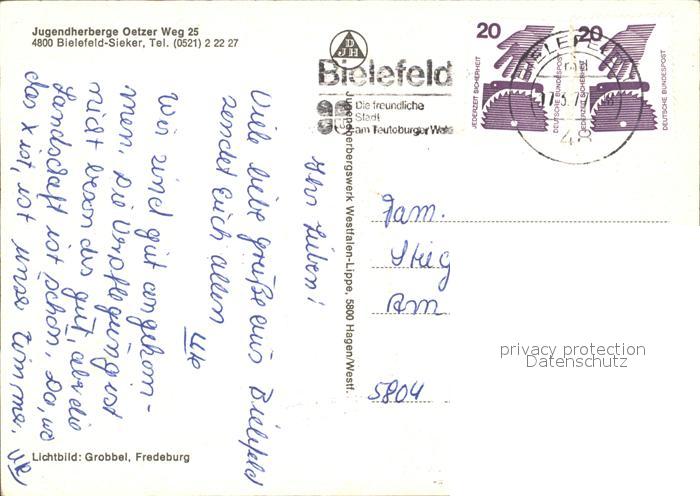 Jugendherberge Oetzer Weg 25
4800 Bielefeld-Sieker, Tel. (0521) 2 22 27
DJH
Bielefeld
Die freundliche
Stadt
am Teutoburger Wald
20
JEDERZEIT SICHERHEIT
DEUTSCHE BUNDESPOST
20
JEDERZEIT SICHERHEIT
DEUTSCHE BUNDESPOST
BIELEFELD
Jugendherbergswerk Westfalen-Lippe, 5800 Hagen/Westf.
Ihr Lieben!
Viele liebe Grüße aus Bielefeld
sendet Euch allen
Uli
Wir sind gut angekom-
men, die Verpflegung ist
nicht besonders gut, aber die
Landschaft ist schön. Da, wo
das X ist, ist unser Zimmer.
Fam.
Stieg
Am
5804
privacy protection
Datenschutz
Lichtbild: Grobbel, Fredeburg